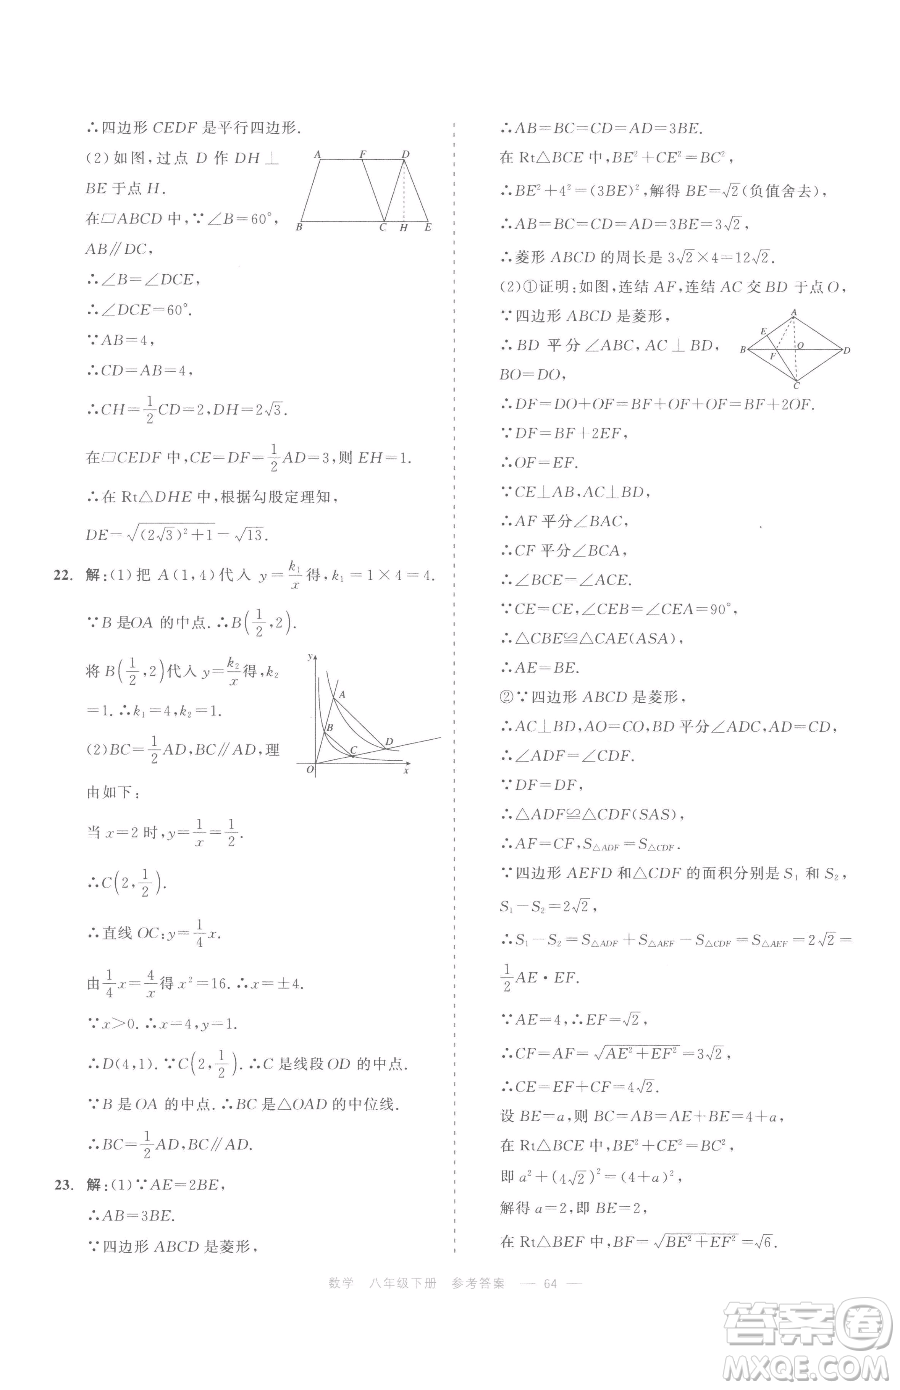 ∴四边形CEDF是平行四边形.
(2)如图,过点D作DH⊥
BE于点H.
在▱ABCD中,∵∠B=60°,
AB∥DC,
∴∠B=∠DCE,
∴∠DCE=60°.
∵AB=4,
∴CD=AB=4,
∴CH=1/2CD=2,DH=2√3.
在▱CEDF中,CE=DF=1/2AD=3,则EH=1.
∴在Rt△DHE中,根据勾股定理知,
DE=√((2√3)²+1)=√13.
A F D
B C H E
22. 解:(1)把A(1,4)代入y=k₁/x得,k₁=1×4=4.
∵B是OA的中点.∴B(1/2,2).
将B(1/2,2)代入y=k₂/x得,k₂
=1.∴k₁=4,k₂=1.
(2)BC=1/2AD,BC∥AD,理
由如下:
当x=2时,y=1/x=1/2.
∴C(2,1/2).
∴直线OC:y=1/4x.
由1/4x=4/x得x²=16.∴x=±4.
∵x>0.∴x=4,y=1.
∴D(4,1).∵C(2,1/2).∴C是线段OD的中点.
∵B是OA的中点.∴BC是△OAD的中位线.
∴BC=1/2AD,BC∥AD.
y
A
B
C D
O x
23. 解:(1)∵AE=2BE,
∴AB=3BE.
∵四边形ABCD是菱形,
∴AB=BC=CD=AD=3BE.
在Rt△BCE中,BE²+CE²=BC²,
∴BE²+4²=(3BE)²,解得BE=√2(负值舍去),
∴AB=BC=CD=AD=3BE=3√2.
∴菱形ABCD的周长是3√2×4=12√2.
(2)①证明:如图,连结AF,连结AC交BD于点O,
∵四边形ABCD是菱形,
∴BD平分∠ABC,AC⊥BD,
BO=DO,
∴DF=DO+OF=BF+OF+OF=BF+2OF.
∵DF=BF+2EF,
∴OF=EF.
∵CE⊥AB,AC⊥BD,
∴AF平分∠BAC,
∴CF平分∠BCA,
∴∠BCE=∠ACE,
∵CE=CE,∠CEB=∠CEA=90°,
∴△CBE≌△CAE(ASA),
∴AE=BE.
A
E
B F O D
C
②∵四边形ABCD是菱形,
∴AC⊥BD,AO=CO,BD平分∠ADC,AD=CD,
∴∠ADF=∠CDF.
∵DF=DF,
∴△ADF≌△CDF(SAS),
∴AF=CF,S△ADF=S△CDF.
∵四边形AEFD和△CDF的面积分别是S₁和S₂,
S₁-S₂=2√2,
∴S₁-S₂=S△ADF+S△AEF-S△CDF=S△AEF=2√2=
1/2AE·EF.
∵AE=4,∴EF=√2,
∴CF=AF=√(AE²+EF²)=3√2,
∴CE=CF+EF=4√2.
设BE=a,则BC=AB=AE+BE=4+a,
在Rt△BCE中,BE²+CE²=BC²,
即a²+(4√2)²=(4+a)²,
解得a=2,即BE=2,
在Rt△BEF中,BF=√(BE²+EF²)=√6.
数学 八年级下册 参考答案 — 64 —
答案圈
MXQE.COM